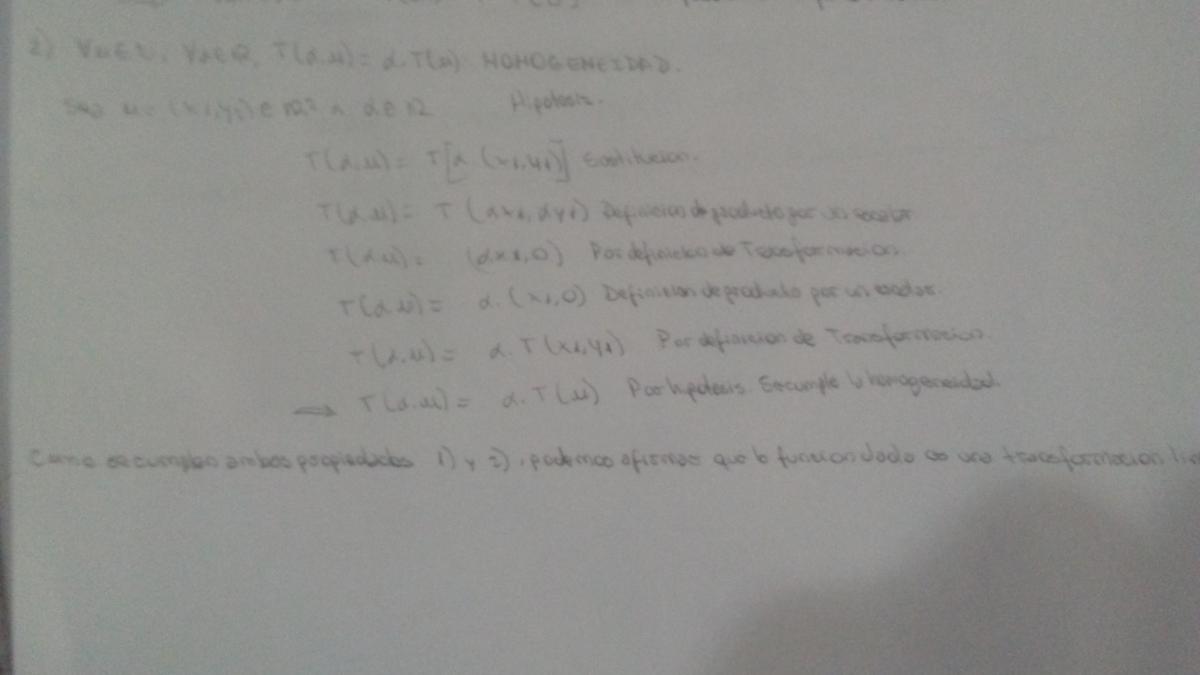 2) ∀u∈U, ∀α∈R, T(α.u) = α.T(u) HOMOGENEIDAD.
Sea u = (x1,y1) ∈ R² ∧ α ∈ R Hipotesis.
T(α.u) = T[α (x1,y1)] Sustitucion.
T(α.u) = T (αx1, αy1) Definicion de producto por un escalar
T(α.u) = (αx1,0) Por definicion de Transformacion.
T(α.u) = α.(x1,0) Definicion de producto por un escalar.
T(α.u) = α.T(x1,y1) Por definicion de Transformacion.
⟹ T(α.u) = α.T(u) Por hipotesis. Se cumple la homogeneidad.
Como se cumplen ambas propiedades 1) y 2), podemos afirmar que la funcion dada es una transformacion